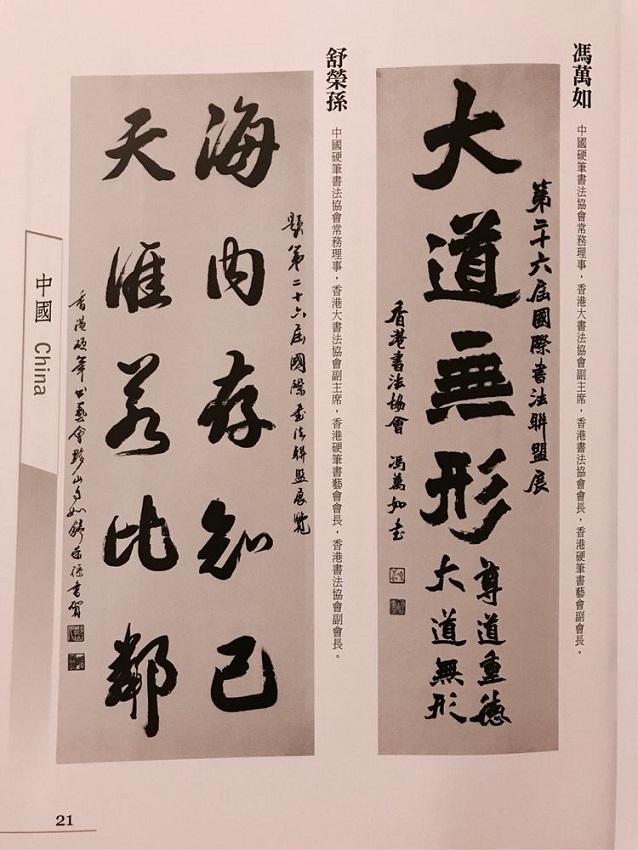 馮萬如
中國硬筆書法協會常務理事，香港大書法協會副主席，香港書法協會會長，香港硬筆書藝會副會長。
第二十六屆國際书法聯盟展
大道無形
尊道重德
大道無形
香港书法協會 馮萬如书
舒榮孫
中國硬筆書法協會常務理事，香港大書法協會副主席，香港硬筆書藝會會長，香港書法協會副會長。
題第二十六屆國際书法联盟展覽
海内存知己
天涯若比鄰
香港硬筆书藝會
中國 China
21